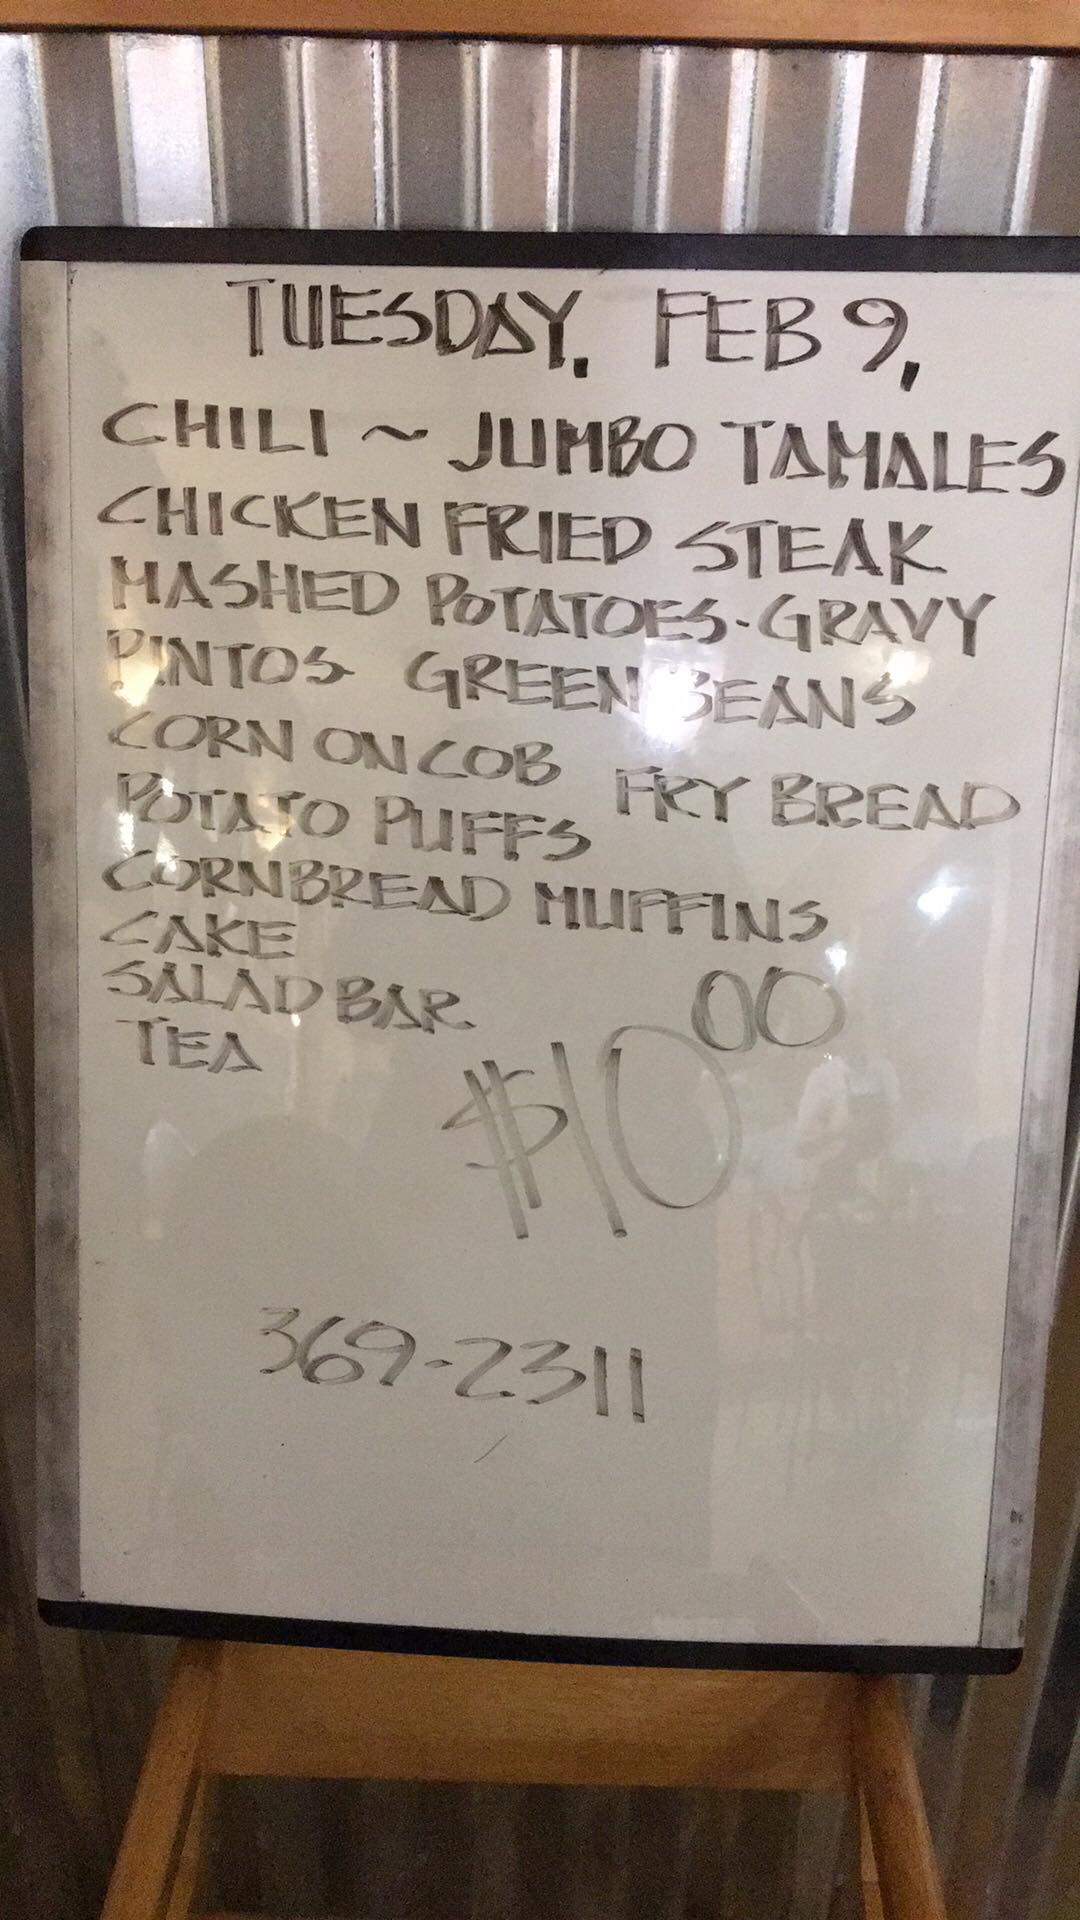 TUESDAY, FEB 9,
CHILI ~ JUMBO TAMALES
CHICKEN FRIED STEAK
MASHED POTATOES - GRAVY
PINTOS GREEN BEANS
CORN ON COB FRY BREAD
POTATO PUFFS
CORNBREAD MUFFINS
CAKE
SALAD BAR
TEA
$10 00
369-2311